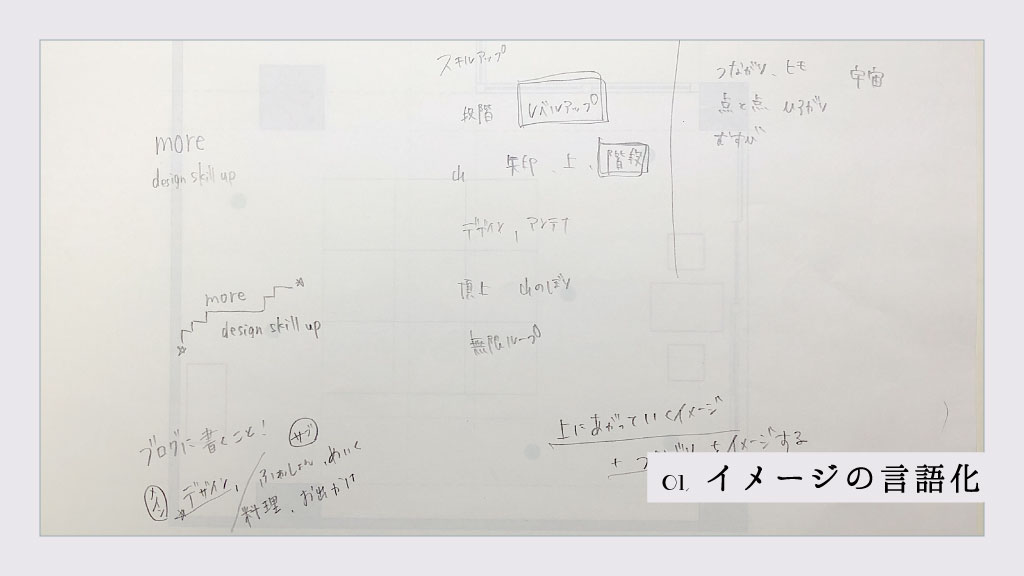 more
design skill up
more
design skill up
ブログに書くこと!
サブ
メイン
デザイン、
ふぁっしょん、めいく
料理、お出かけ
スキルアップ
段階 レベルアップ
山 矢印、上、階段
デザイン、アンテナ
頂上 山のぼり
無限ループ
つながり、ヒモ
宇宙
点と点 ひろがり
むすび
上にあがっていくイメージ
+ つながりもイメージする
01. イメージの言語化